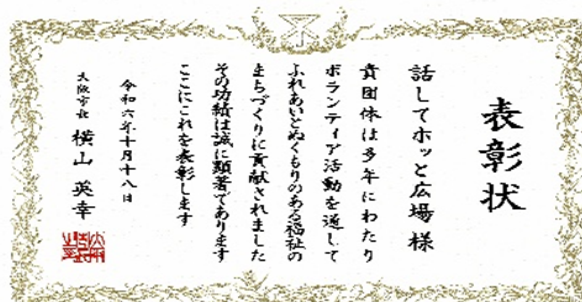 表彰状
話してホッと広場様
貴団体は多年にわたり
ボランティア活動を通して
ふれあいとぬくもりのある福祉の
まちづくりに貢献されました
その功績は誠に顕著であります
ここにこれを表彰します
令和六年十月十八日
大阪市長 横山英幸